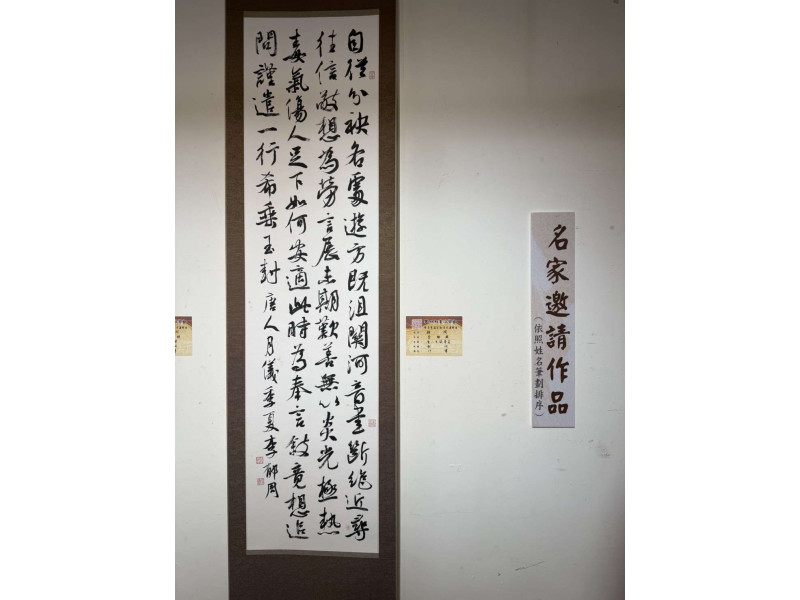 名家邀請作品
（依照姓名筆劃排序）
自從分袂各處遊方既沮關河音塵斷絕近尋
往信敬想為勞言展未期歎善無以炎光極熱
毒氣傷人足下如何安適此時為奉言敘竟想追
問謹遣一行希垂玉封 唐人月儀季夏 李郁周